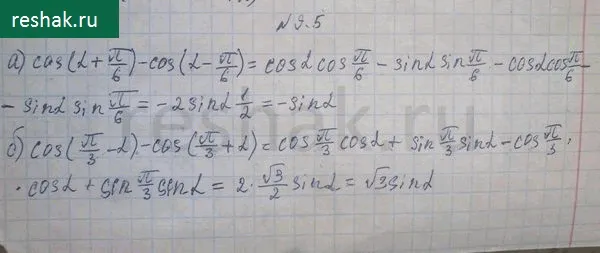 reshak.ru
№9.5
а) cos(α + π/6) - cos(α - π/6) = cosα cos π/6 - sinα sin π/6 - cosα cos π/6 -
- sinα sin π/6 = -2 sinα 1/2 = -sinα
б) cos(π/3 - α) - cos(π/3 + α) = cos π/3 cosα + sin π/3 sinα - cos π/3 ·
· cosα + sin π/3 sinα = 2 · √3/2 sinα = √3 sinα